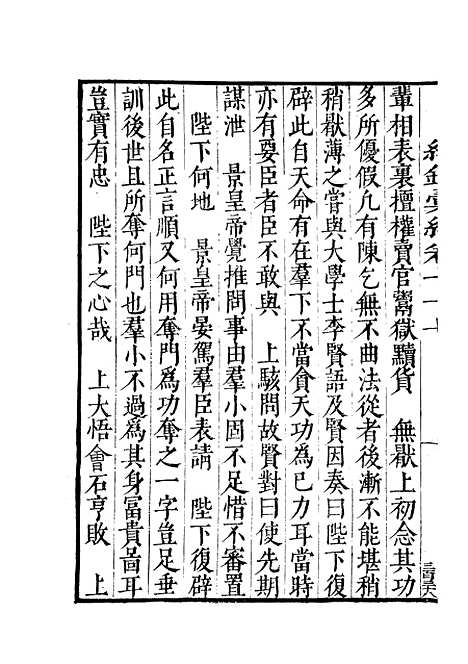 輩相表裏擅權賣官鬻獄黷貨　無厭上初念其功
多所優假凡有陳乞無不曲法從者後漸不能堪稍
稍厭薄之嘗與大學士李賢語及賢因奏曰陛下復
辟此自天命有在羣下不當貪天功爲已力耳當時
亦有要臣者臣不敢與　上駭問故賢對曰使先期
謀泄　景皇帝覺推問事由羣小固不足惜不審置
陛下何地　景皇帝晏駕羣臣表請　陛下復辟
此自名正言順又何用奪門爲功奪之一字豈足垂
訓後世且所奪何門也羣小不過爲其身富貴啚耳
豈實有忠　陛下之心哉　上大悟會石亨敗　上